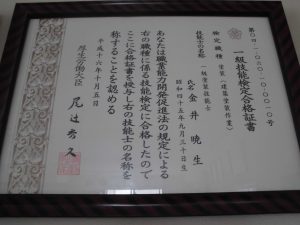 一級技能検定合格証書
検定職種 塗装(建築塗装作業)
技能士の名称 一級塗装技能士
氏名 金井暁生
昭和四十五年九月三十日生
あなたは職業能力開発促進法の規定による
右の職種に係る技能検定に合格したので
ここに合格証書を授与し右の技能士の名称を
称することを認める
平成十六年十月五日
厚生労働大臣 尾辻秀久